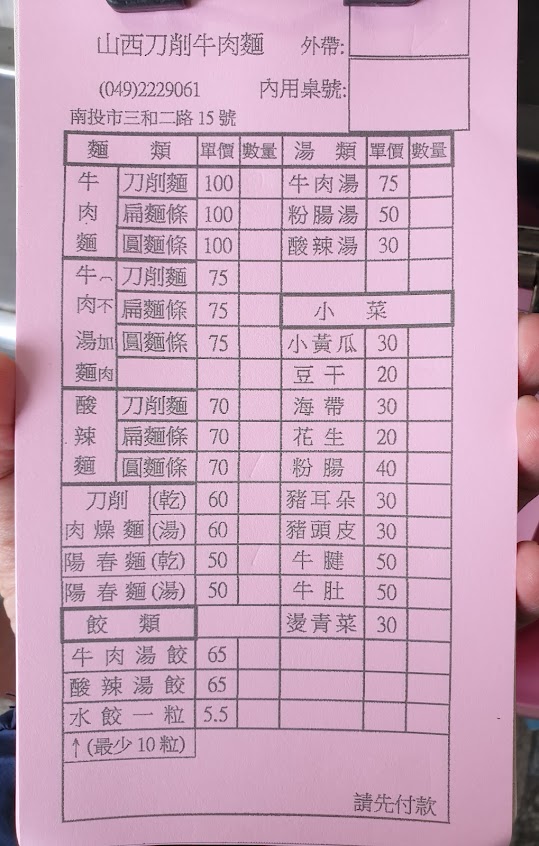 山西刀削牛肉麵 外帶:
(049)2229061 內用桌號:
南投市三和二路15號
麵類 單價 數量 湯類 單價 數量
牛肉麵 刀削麵 100 牛肉湯 75
扁麵條 100 粉腸湯 50
圓麵條 100 酸辣湯 30
牛肉湯麵(不加肉 刀削麵 75
扁麵條 75 小菜
圓麵條 75 小黃瓜 30
豆干 20
酸辣麵 刀削麵 70 海帶 30
扁麵條 70 花生 20
圓麵條 70 粉腸 40
刀削肉燥麵 (乾) 60 豬耳朵 30
(湯) 60 豬頭皮 30
陽春麵(乾) 50 牛腱 50
陽春麵(湯) 50 牛肚 50
餃類 燙青菜 30
牛肉湯餃 65
酸辣湯餃 65
水餃一粒 5.5
↑(最少10粒)
請先付款